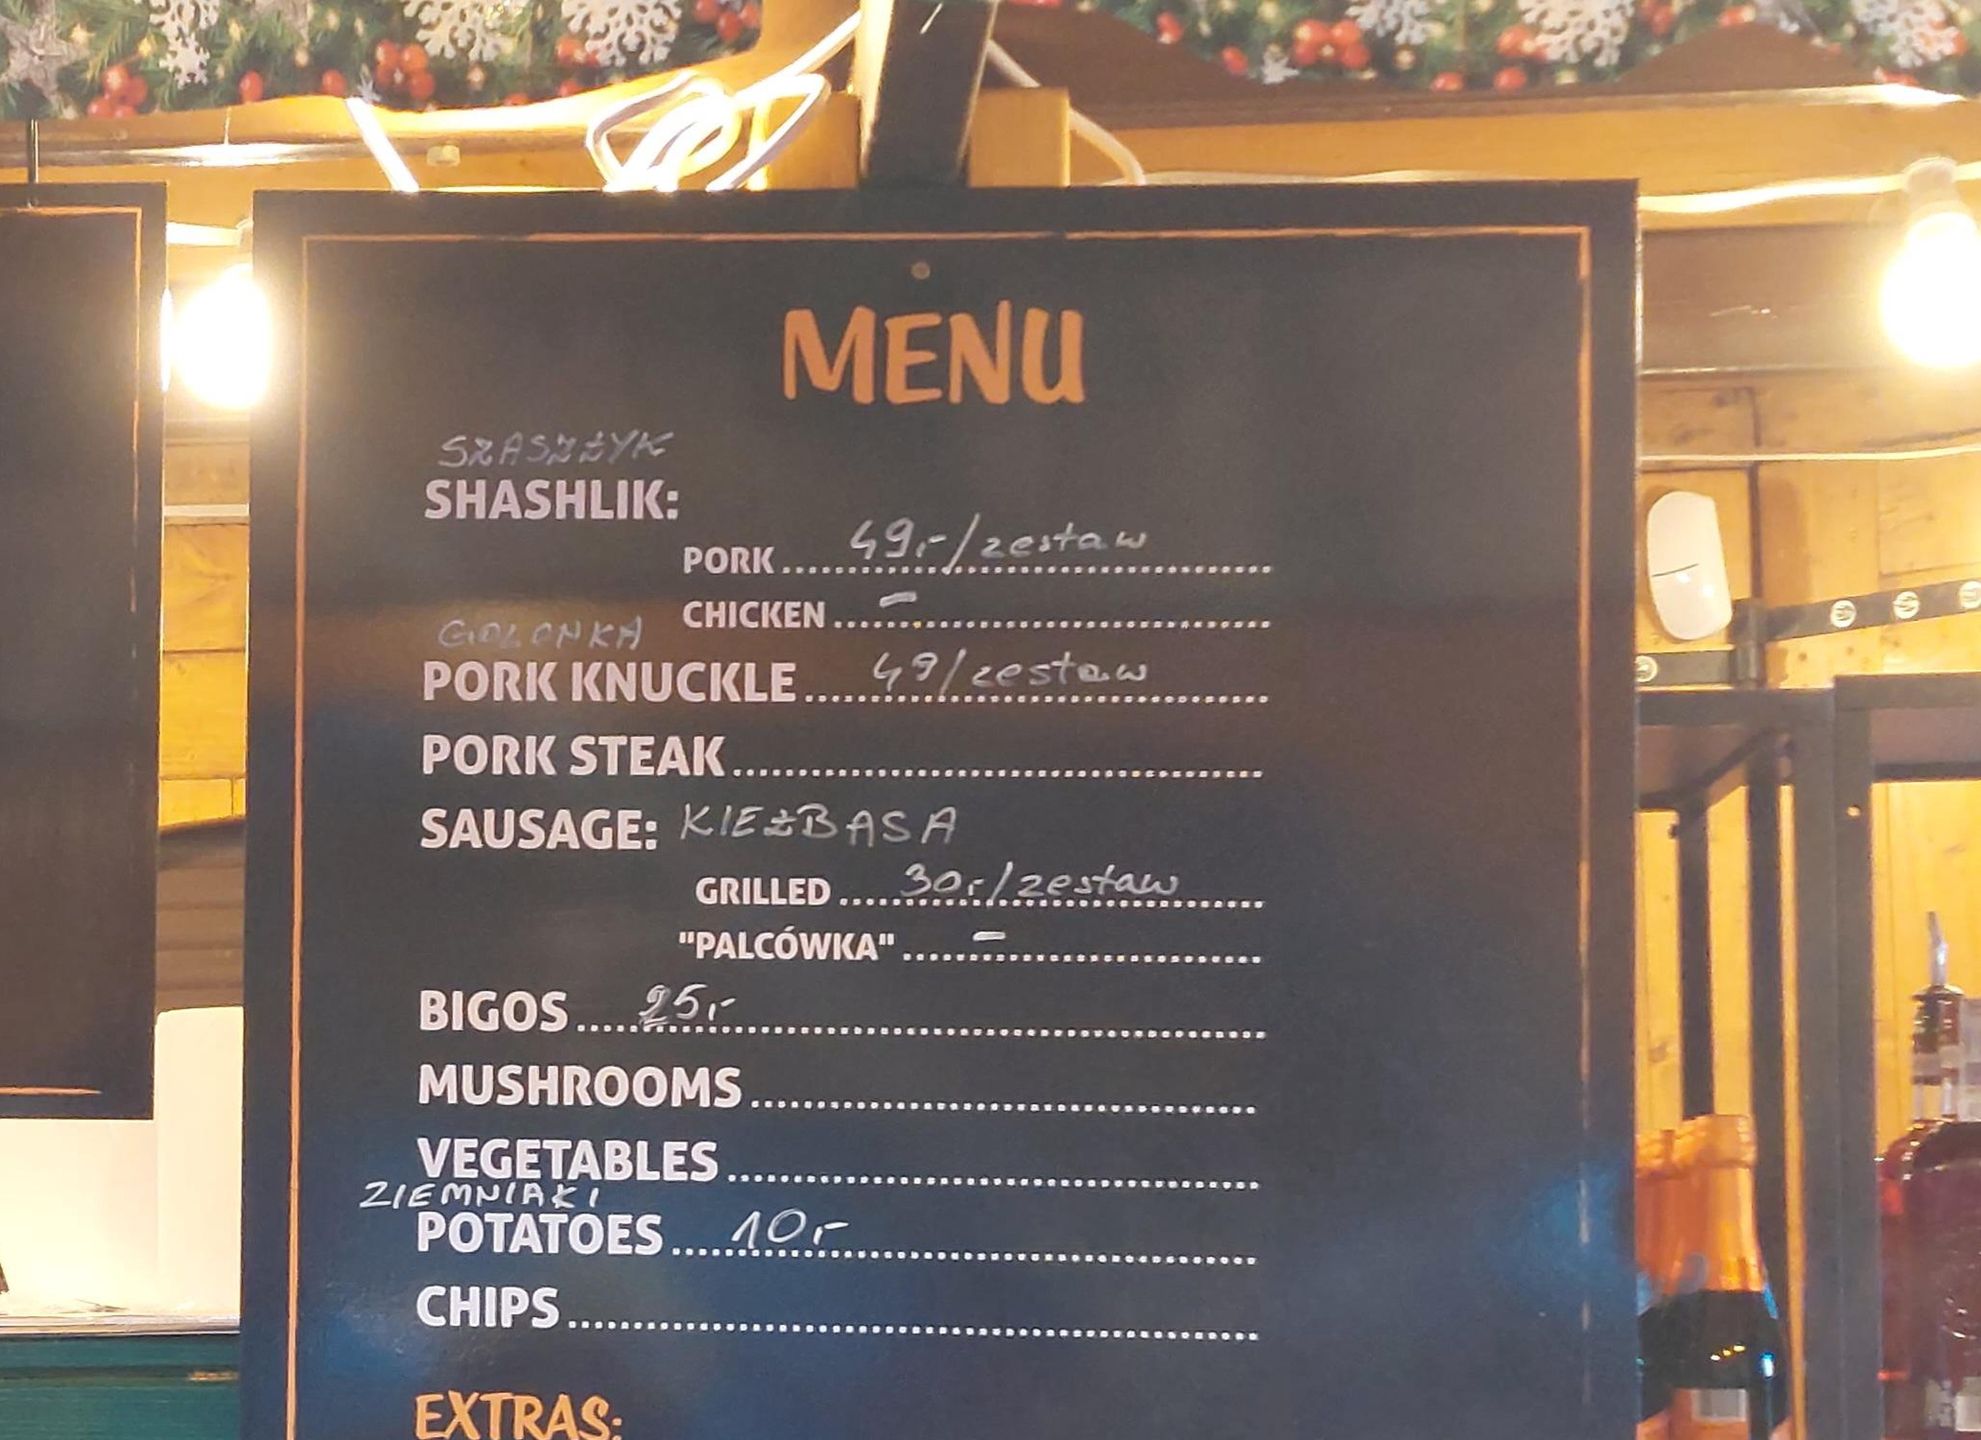 MENU
SZASZŁYK
SHASHLIK:
PORK.....49,-/zestaw
CHICKEN.....-
GOLONKA
PORK KNUCKLE.....49/zestaw
PORK STEAK.....
SAUSAGE: KIEŁBASA
GRILLED.....30,-/zestaw
"PALCÓWKA".....-
BIGOS.....25,-
MUSHROOMS.....
VEGETABLES.....
ZIEMNIAKI
POTATOES.....10,-
CHIPS.....
EXTRAS: